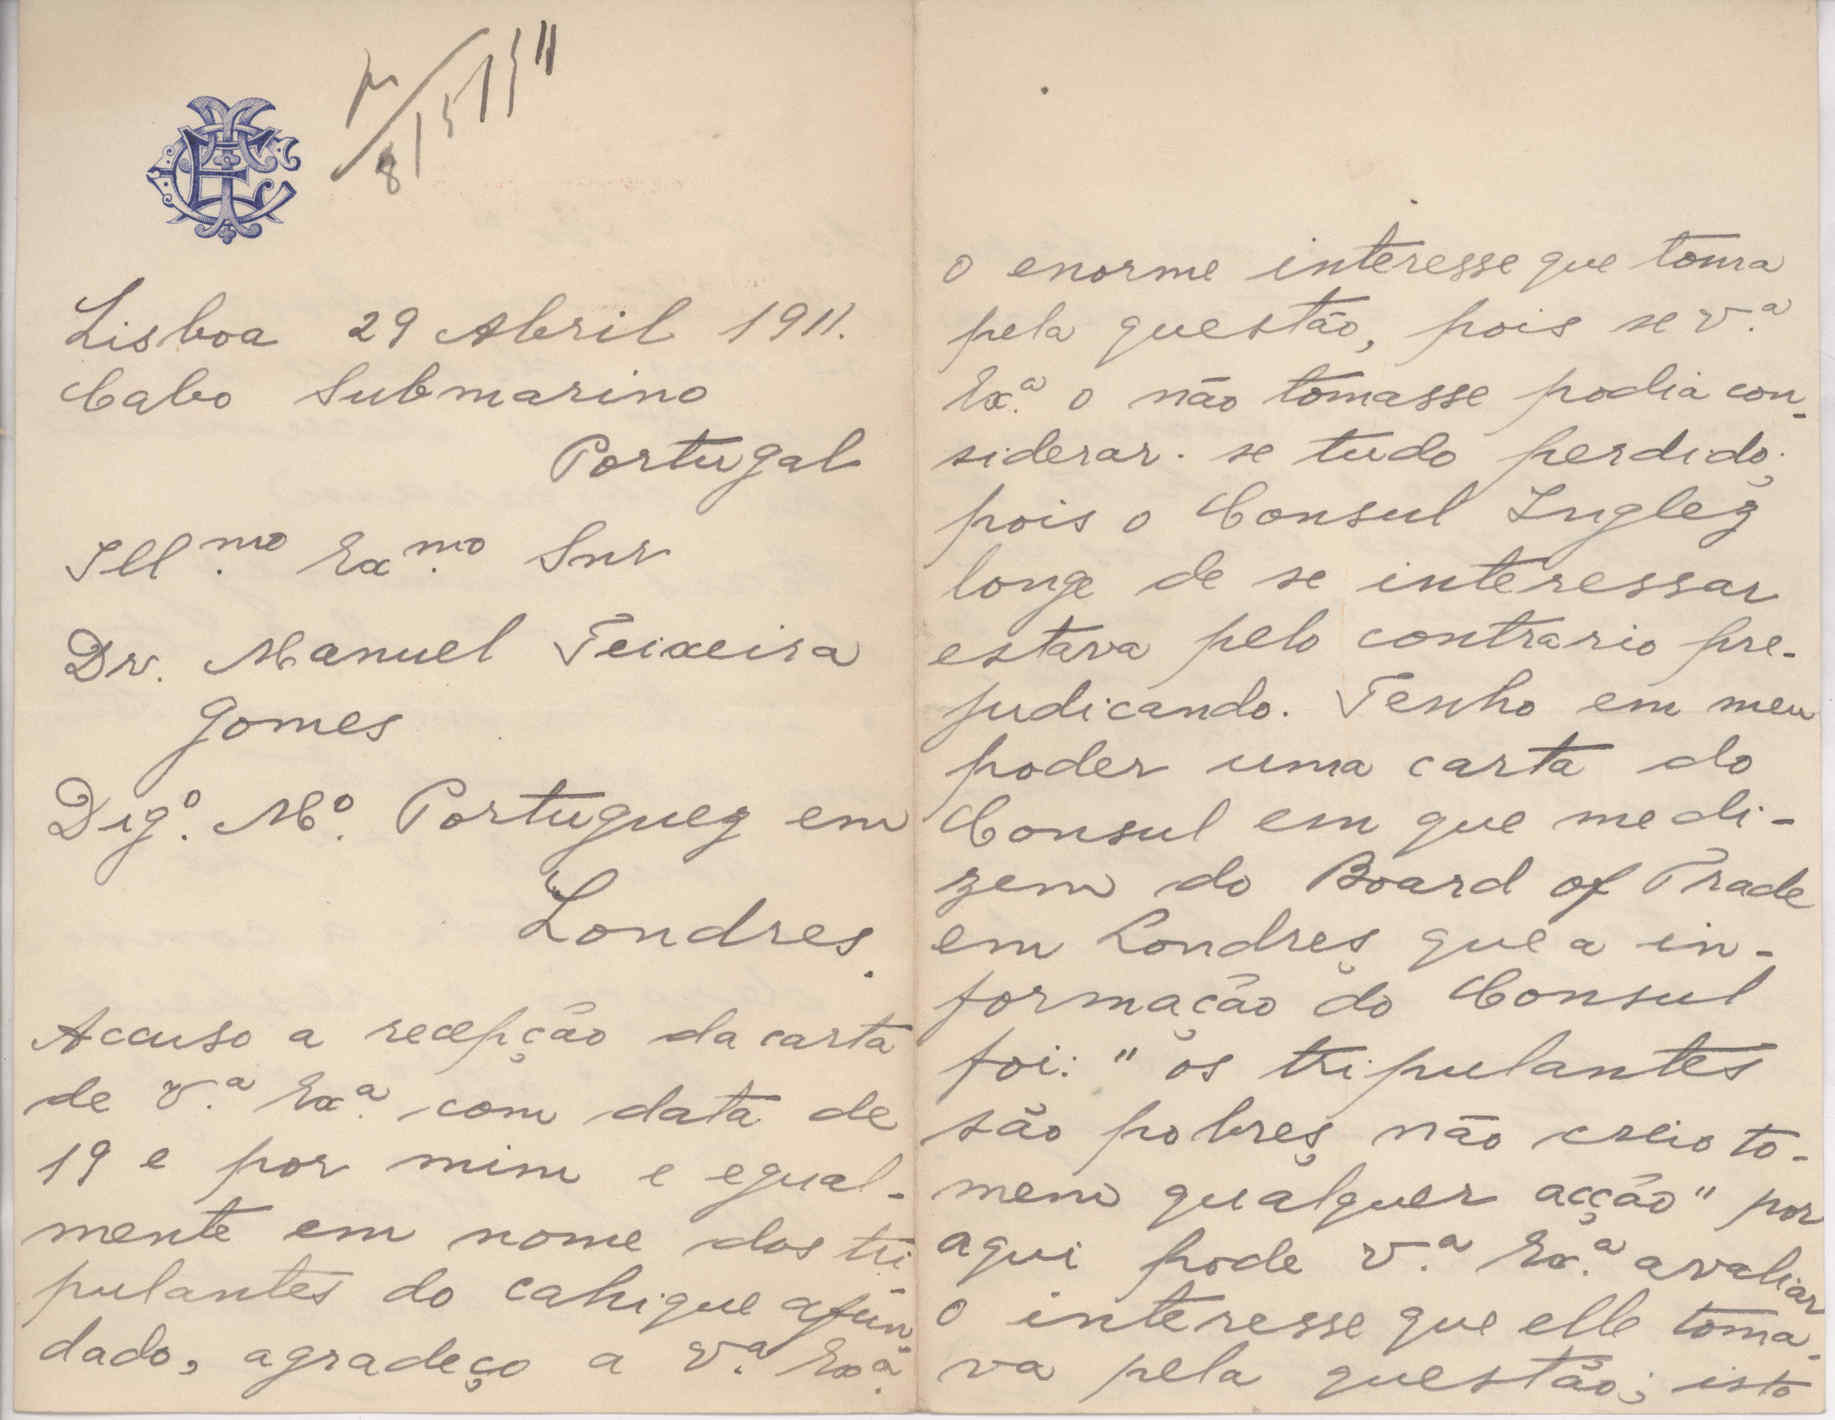 8/5/911
Lisboa 29 Abril 1911.
Cabo Submarino
Portugal
Ill.mo Ex.mo Snr
Dr. Manuel Teixeira
Gomes
Dig.º M.º Portuguez em
Londres.
Accuso a recepção da carta
de V.ª Ex.ª com data de
19 e por mim e egual-
mente em nome dos tri
pulantes do cahique afun
dado, agradeço a V.ª Ex.ª
o enorme interesse que toma
pela questão, pois se V.ª
Ex.ª o não tomasse podia con-
siderar-se tudo perdido;
pois o Consul Inglez
longe de se interessar
estava pelo contrario pre-
judicando. Tenho em meu
poder uma carta do
Consul em que me di-
zem do Board of Trade
em Londres que a in-
formação do Consul
foi: "os tripulantes
são pobres, não creio to-
mem qualquer acção" por
aqui pode V.ª Ex.ª avaliar
o interesse que elle toma-
va pela questão; isto